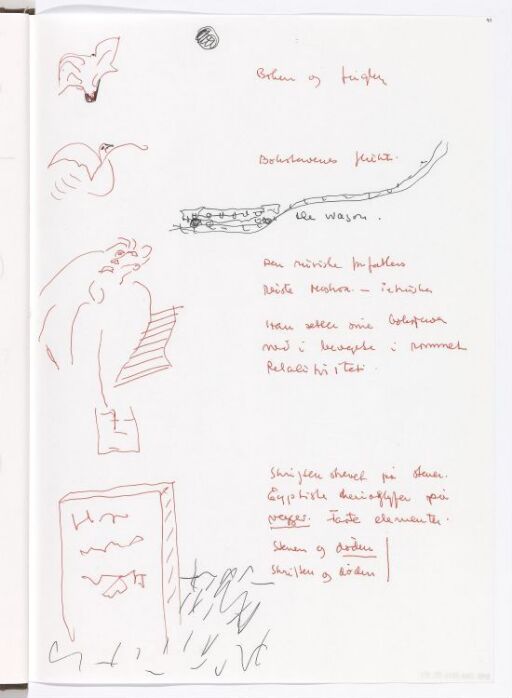 Boken og fuglen
Bokstavenes flukt.
the wagon.
Den russiske forfatters
siste
Han setter sine bokstaver
ned i bevegelse i rommet
Relativitet.
Skriften skrevet på stener.
Egyptiske hieroglyfer på
vegger. Faste elementer.
Stenen og døden
Skriften og døden